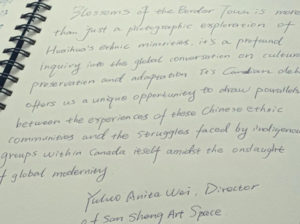 Blossoms of the Pandor Town is more
than just a photographic exploration of
Huaihua's ethnic minorities. it's a profound
inquiry into the global conversation on culture
preservation and adaptation Its Canadian debut
offers us a unique opportunity to draw parallels
between the experiences of these Chinese ethnic
communities and the struggles faced by indigenous
groups within Canada itself amidst the onslaught
of global modernity
Yuluo Anita Wei, Director
of San Sheng Art Space